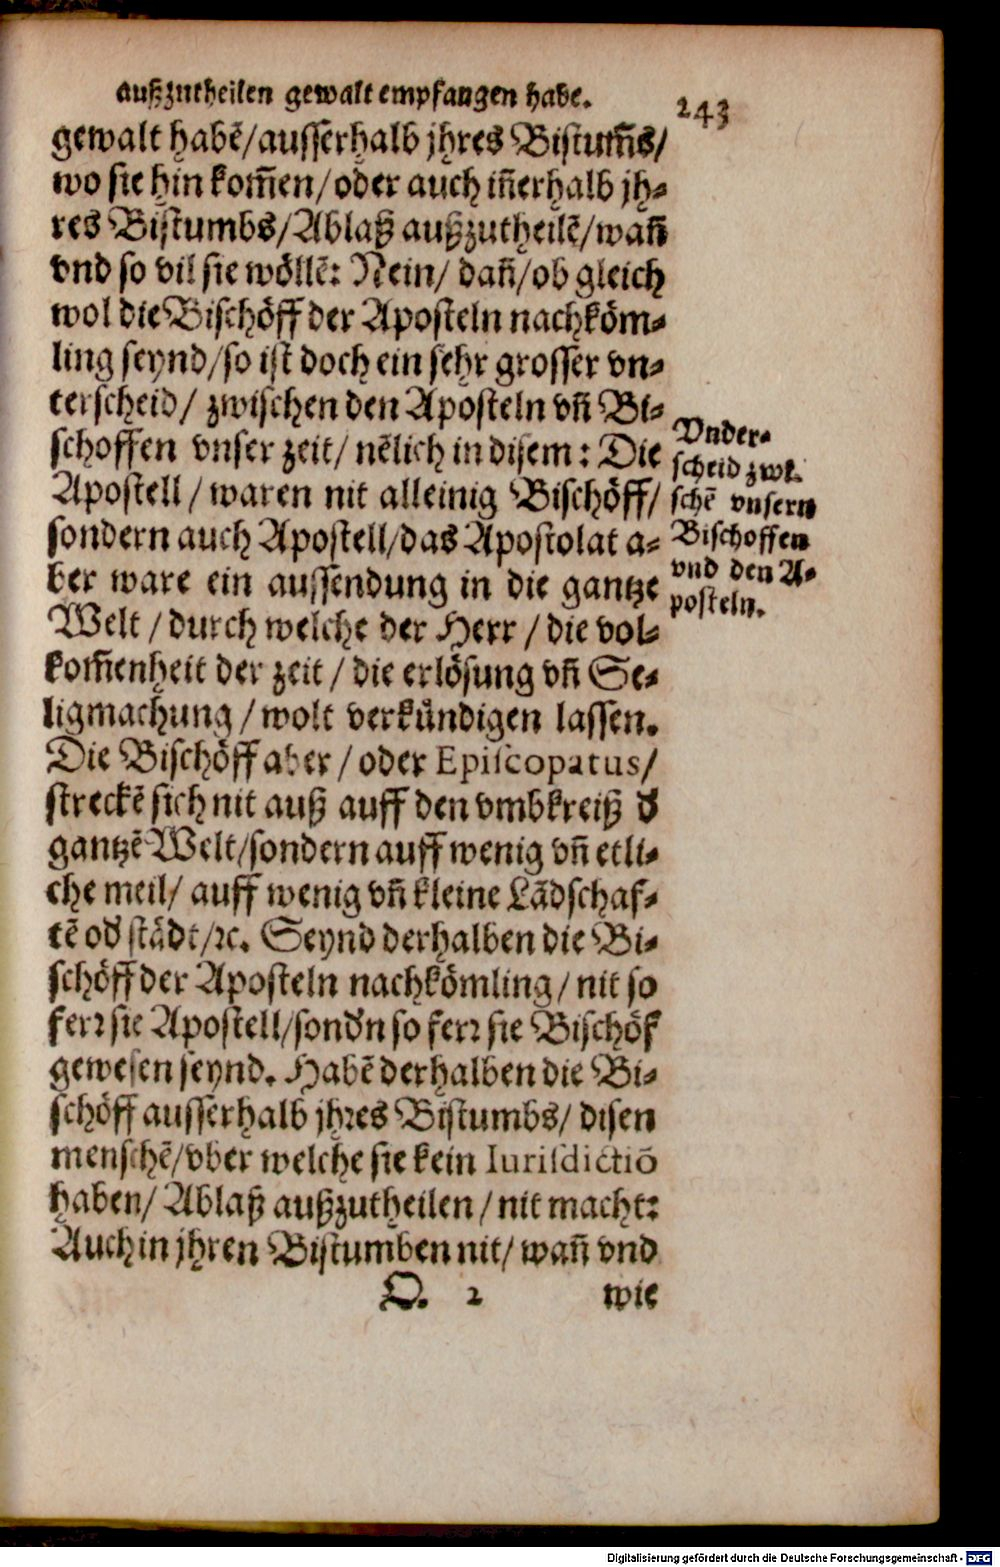 außzutheilen gewalt empfangen habe. 243
gewalt habẽ/ausserhalb jhres Bistum̃s/
wo sie hin kom̃en/oder auch iñerhalb jh⸗
res Bistumbs/Ablaß außzutheilẽ/wañ
vnd so vil sie wöllẽ: Nein/ dañ/ob gleich
wol die Bischöff der Aposteln nachköm⸗
ling seynd/so ist doch ein sehr grosser vn⸗
terscheid/ zwischen den Aposteln vñ Bi⸗
schoffen vnser zeit/ nẽlich in disem: Die
Apostell/waren nit alleinig Bischöff/
sondern auch Apostell/das Apostolat a⸗
ber ware ein aussendung in die gantze
Welt/durch welche der Herr/die vol⸗
kom̃enheit der zeit/die erlösung vñ Se⸗
ligmachung/wolt verkündigen lassen.
Die Bischöff aber/oder Episcopatus/
streckẽ sich nit auß auff den vmbkreiß d̕
gantzẽ Welt/sondern auff wenig vñ etli⸗
che meil/ auff wenig vñ kleine Lãdschaf⸗
tẽ od̕ städt/ꝛc. Seynd derhalben die Bi⸗
schöff der Aposteln nachkömling/ nit so
ferꝛ sie Apostell/sond̕n so ferꝛ sie Bischöf
gewesen seynd. Habẽ derhalben die Bi⸗
schöff ausserhalb jhꝛes Bistumbs/ disen
menschẽ/vber welche sie kein Iurisdictiõ
haben/ Ablaß außzutheilen/nit macht:
Auch in jhren Bistumben nit/ wañ vnd
Q. 2 wie
Vnder⸗
scheid zwi⸗
schẽ vnsern
Bischoffen
vnd den A⸗
posteln.
Digitalisierung gefördert durch die Deutsche Forschungsgemeinschaft - DFG